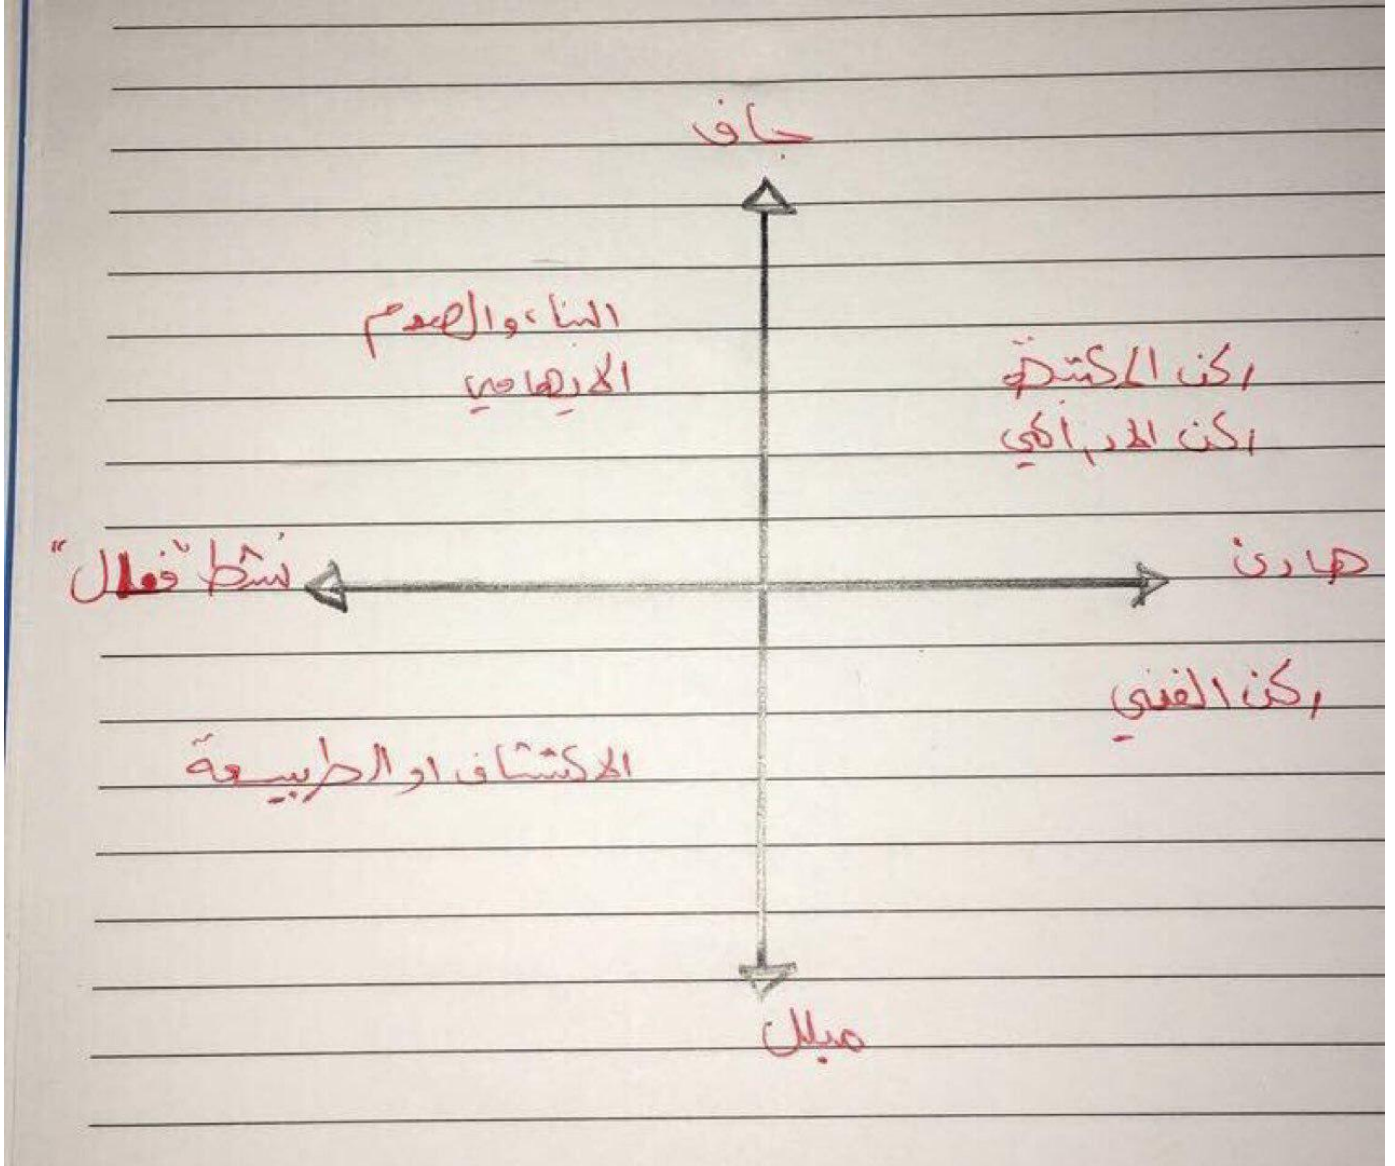 جاف
البناء والهدم
الايهامي
ركن المكتبة
ركن الادراكي
نشط "فعال"
هادئ
ركن الفني
الاكتشاف او الطبيعة
مبلل